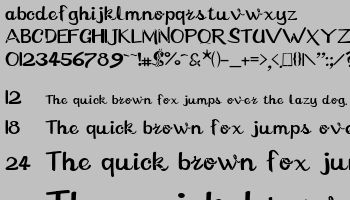 abcdefghijklmnopqrstuvwxyz
ABCDEFGHIJKLMNOPQRSTUVWXYZ
0123456789
12 The quick brown fox jumps over the lazy dog.
18 The quick brown fox jumps ov
24 The quick brown fox jum
The quick brown